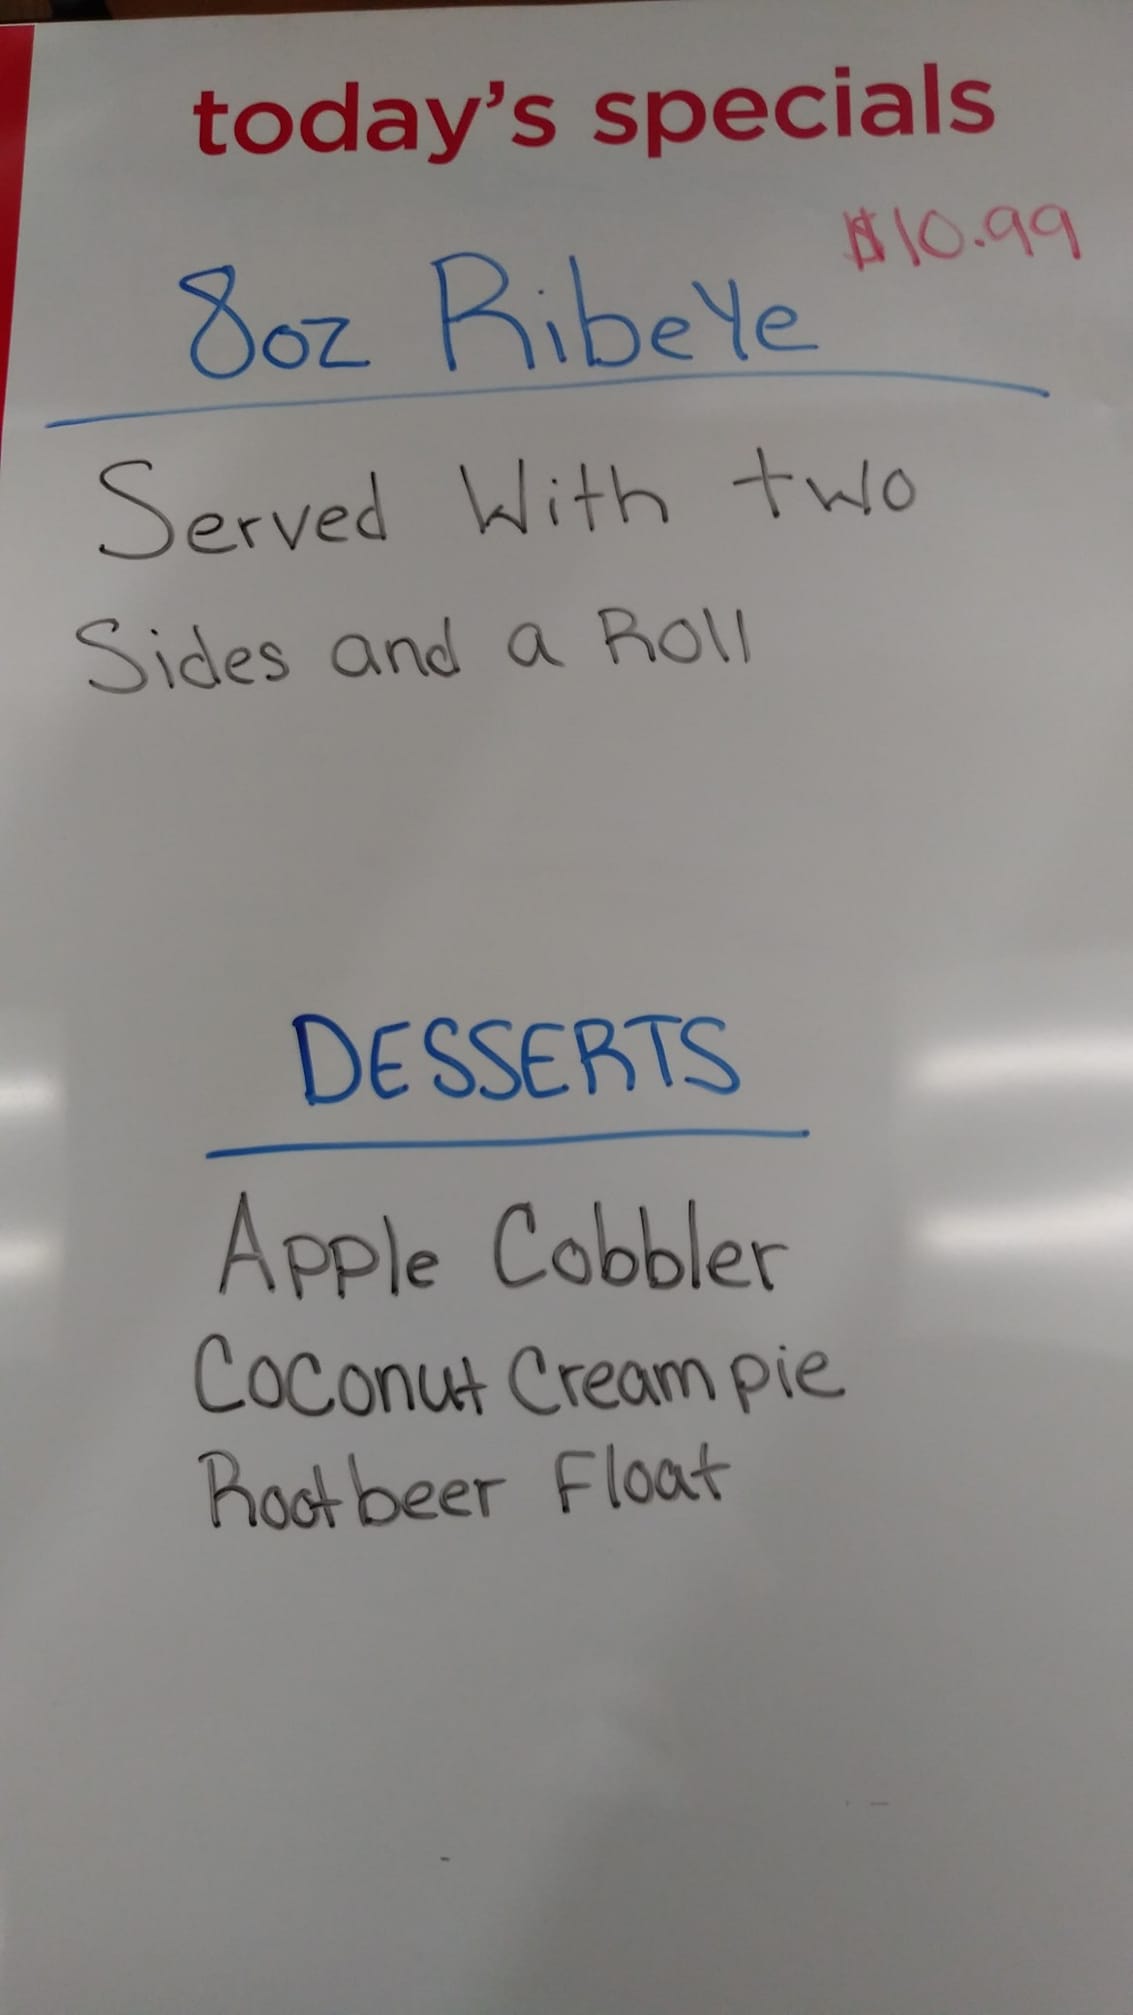 today's specials
$10.99
8oz RibeYe
Served With two
Sides and a Roll
DESSERTS
Apple Cobbler
Coconut Cream pie
Rootbeer Float